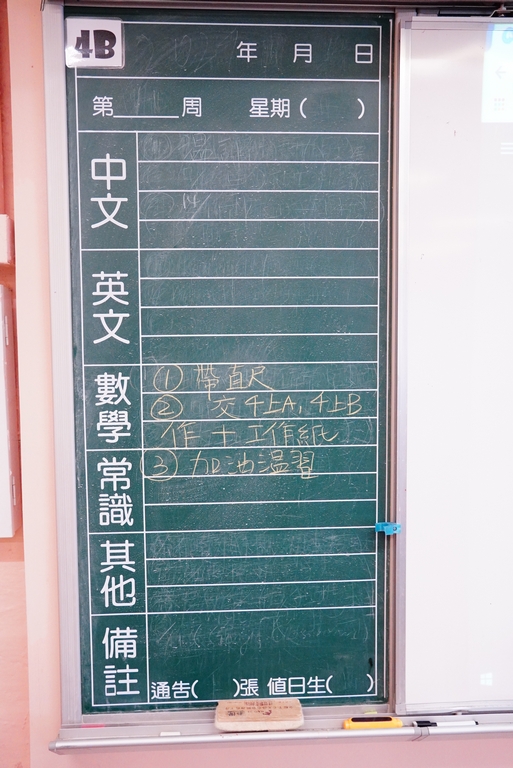 4B
年 月 日
第______周 星期( )
中文
英文
數學
① 帶直尺
② 交4上A,4上B
作+工作紙
③ 加油溫習
常識
其他
備註
通告( )張 值日生( )